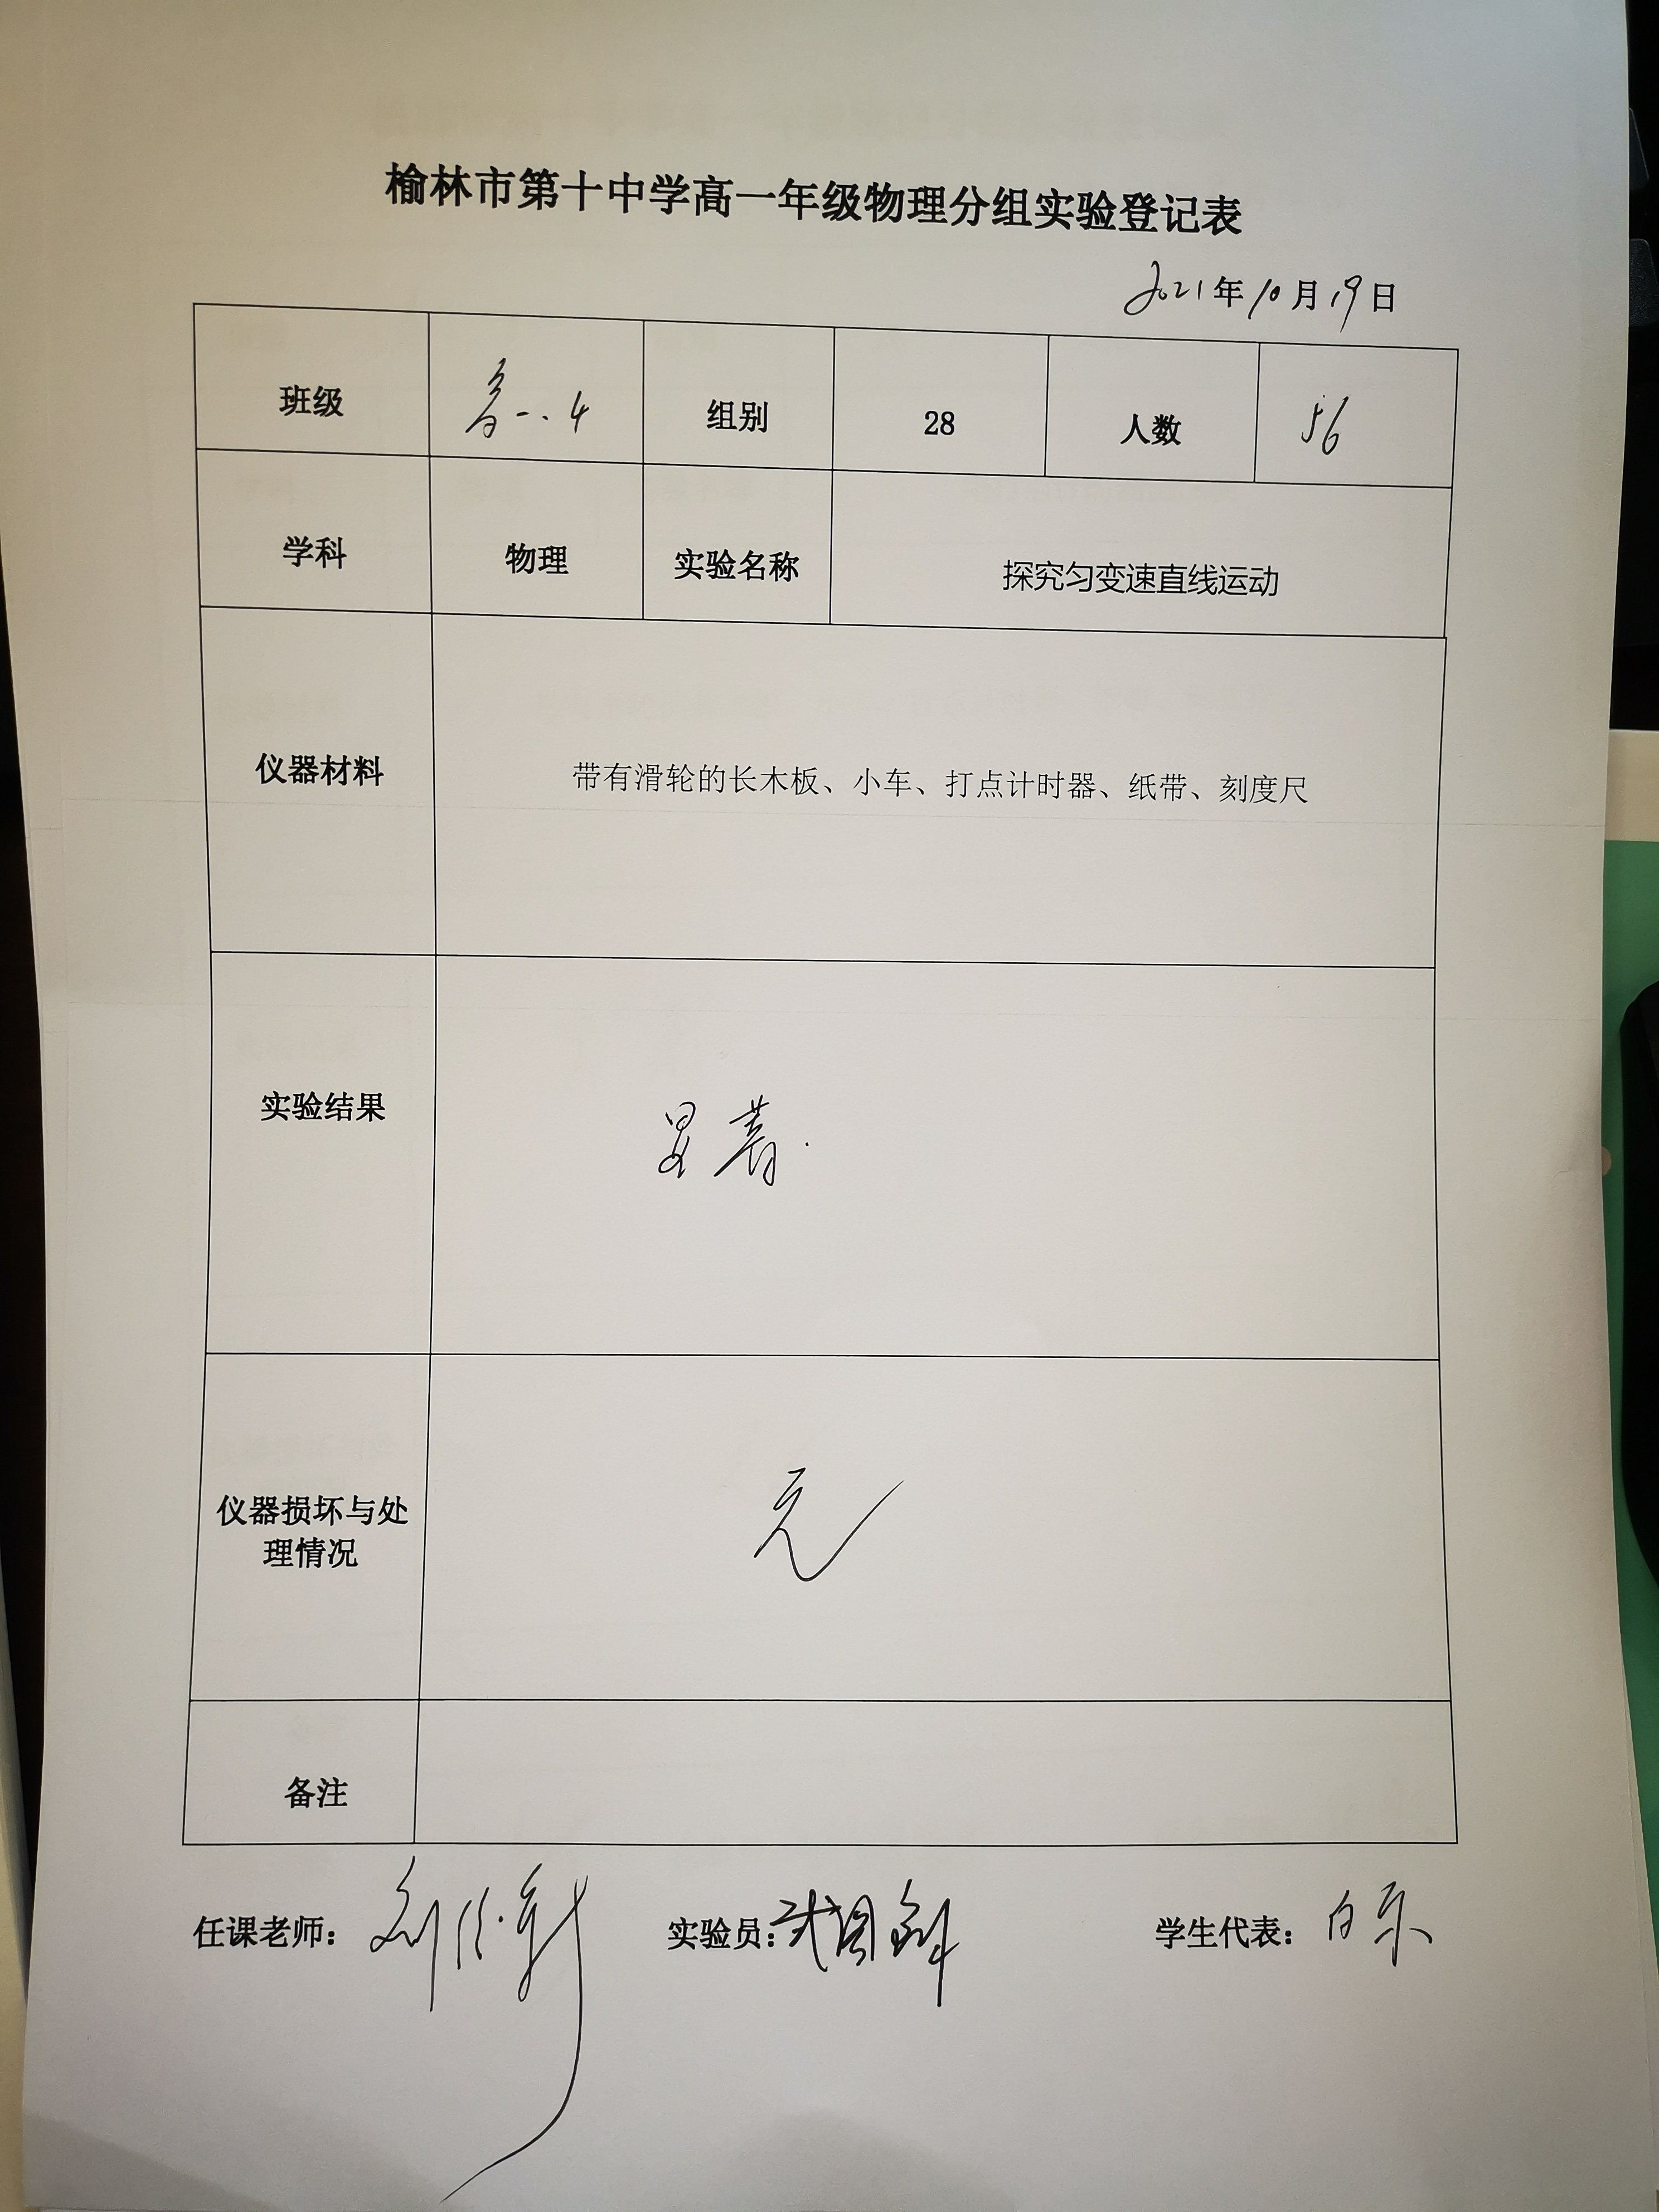 榆林市第十中学高一年级物理分组实验登记表
2021年10月19日
班级 高一.4 组别 28 人数 56
学科 物理 实验名称 探究匀变速直线运动
仪器材料 带有滑轮的长木板、小车、打点计时器、纸带、刻度尺
实验结果 显著.
仪器损坏与处
理情况 无
备注
任课老师: 实验员: 学生代表: 白乐